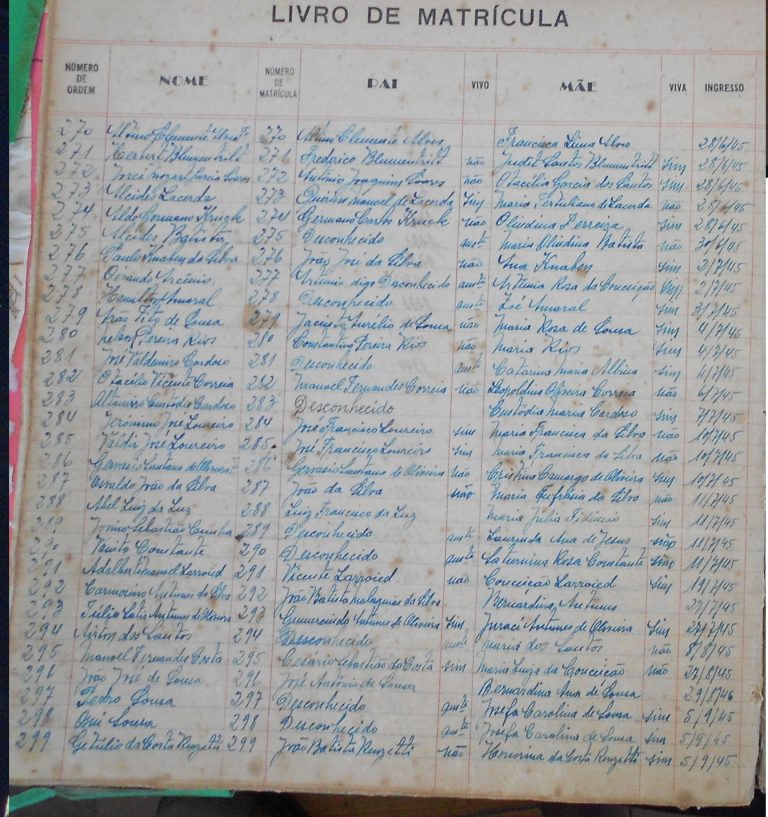 LIVRO DE MATRÍCULA
NÚMERO DE ORDEM NOME NÚMERO DE MATRÍCULA PAI VIVO MÃE VIVA INGRESSO
270 270 Clemente Alves Francisca Lima Alves 28/6/45
271 Herbert Blumentritt 271 Frederico Blumentritt não Judit Santos Blumentritt sim 28/6/45
272 José Mozart Garcia Soares 272 Antônio Joaquim Soares não Otacilia Garcia dos Santos sim 28/6/45
273 Alcides Lacerda 273 Manoel de Lacerda sim Maria Tertuliana de Lacerda não 28/6/45
274 Aldo Germano Kruck 274 Germano Carlos Kruck não Olindina Ferreira sim 28/6/45
275 Alcides Batista 275 Desconhecido austê Maria Olindina Batista não 30/6/45
276 Paulo Knaben da Silva 276 João José da Silva não Ana Knaben sim 2/7/45
277 277 Antônio digo Desconhecido austê Antonia Rosa da Conceição sim 2/7/45
278 Hamilton Amaral 278 Desconhecido austê Zoé Amaral sim 3/7/45
279 João Tito de Sousa 279 Jacinto Aurélio de Sousa não Maria Rosa de Sousa sim 4/7/45
280 Nelson Pereira Rios 280 Constantino Pereira Rios não Maria Rios sim 4/7/45
281 José Valdemiro Cardoso 281 Desconhecido austê Catarina Maria Albina sim 4/7/45
282 Otacílio Vicente Correia 282 Manoel Fernandes Correia não Leopoldina Oliveira Correia não 6/7/45
283 Altamiro Custódio Cardoso 283 Desconhecido Custódia Maria Cardoso sim 7/7/45
284 Jeronimo José Loureiro 284 José Francisco Loureiro sim Maria Francisca da Silva não 10/7/45
285 Valdi José Loureiro 285 José Francisco Loureiro sim Maria Francisca da Silva não 10/7/45
286 Gervasio Caetano de Oliveira 286 Gervasio Caetano de Oliveira não Cristina Camargo de Oliveira sim 10/7/45
287 Osvaldo João da Silva 287 João da Silva não Maria Eufrasia da Silva não 11/7/45
288 Abel Luiz da Luz 288 Luiz Francisco da Luz Maria Julia sim 11/7/45
289 Sebastião Cunha 289 Desconhecido austê Laurinda Ana de Jesus não 11/7/45
290 Vanito Constante 290 Desconhecido austê Saturnina Rosa Constante sim 11/7/45
291 Adalberto Manoel Larroied 291 Vicente Larroied não Conceição Larroied sim 19/7/45
292 Carmosino Antunes da Silva 292 João Batista Malaquias da Silva Bernardina Antunes 27/7/45
293 Túlio Antunes de Oliveira 293 Antunes de Oliveira sim Juraci Antunes de Oliveira sim 27/7/45
294 Ayrton dos Santos 294 Desconhecido austê Maria dos Santos não 8/8/45
295 Manoel Fernandes Costa 295 Cesário Sebastião da Costa sim Maria Luiza da Conceição não 27/8/45
296 João José de Sousa 296 José Antônio de Sousa Bernardina Ana de Sousa 29/8/46
297 Pedro Sousa 297 Desconhecido austê Josefa Carolina de Sousa sim 5/9/45
298 Oni Sousa 298 Desconhecido austê Josefa Carolina de Sousa sim 5/9/45
299 Getulio da Costa Renzetti 299 João Batista Renzetti não Honorina da Costa Renzetti sim 5/9/45